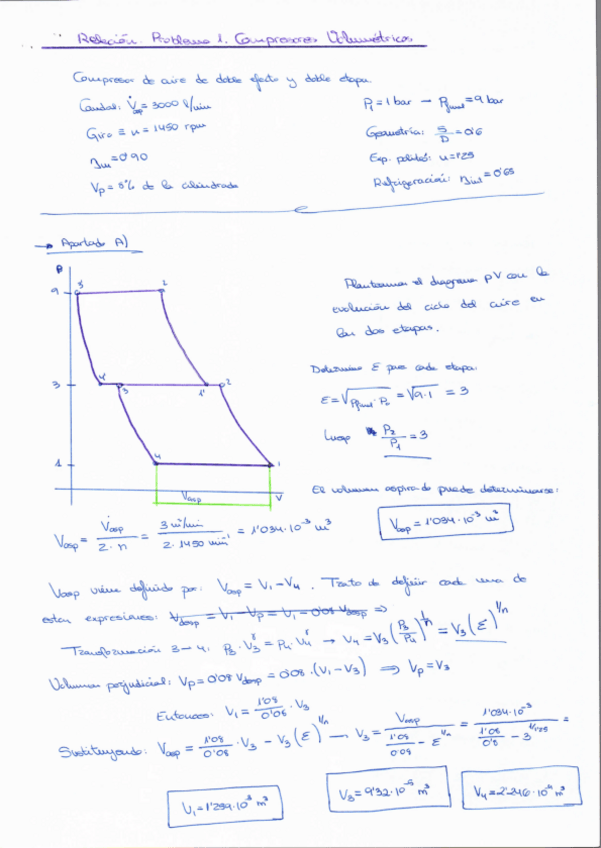 Relación. Problema 1. Compresores Volumétricos
Compresor de aire de doble efecto y doble etapa.
Caudal: V̇asp = 3000 l/min
P1 = 1 bar → Pfinal = 9 bar
Giro ≡ n = 1450 rpm
Geometría: S/D = 0'6
ηm = 0'90
Exp. politró: n = 1'25
Vp = 8% de la cilindrada
Refrigeración: ηint = 0'65
→ Apartado A)
P
9
3
1
3'
2'
4'
3
1'
2
4
1
Vasp
V
Planteamos el diagrama pV con la
evolución del ciclo del aire en
las dos etapas.
Determino E para cada etapa:
E = √(Pfinal · P0) = √(9·1) = 3
Luego P2/P1 = 3
El volumen aspirado puede determinarse:
Vasp = V̇asp / 2·n = 3 m³/min / 2·1450 min⁻¹ = 1'034·10⁻³ m³
Vasp = 1'034·10⁻³ m³
Vasp viene definido por: Vasp = V1 − V4. Trato de definir cada una de
estas expresiones: Vdesp = V1 − Vp = V1 − 0'08 Vdesp ⇒
Transformación 3−4: P3·V3^γ = P4·V4^γ → V4 = V3(P3/P4)^1/n = V3(E)^1/n
Volumen perjudicial: Vp = 0'08 Vdesp = 0'08·(V1 − V3) ⇒ Vp = V3
Entonces: V1 = 1'08/0'08 · V3
Sustituyendo: Vasp = 1'08/0'08 · V3 − V3(E)^1/n → V3 = Vasp / (1'08/0'08 − E^1/n) = 1'034·10⁻³ / (1'08/0'8 − 3^1/1'25) =
V1 = 1'259·10⁻³ m³
V3 = 9'32·10⁻⁵ m³
V4 = 2'246·10⁻⁴ m³